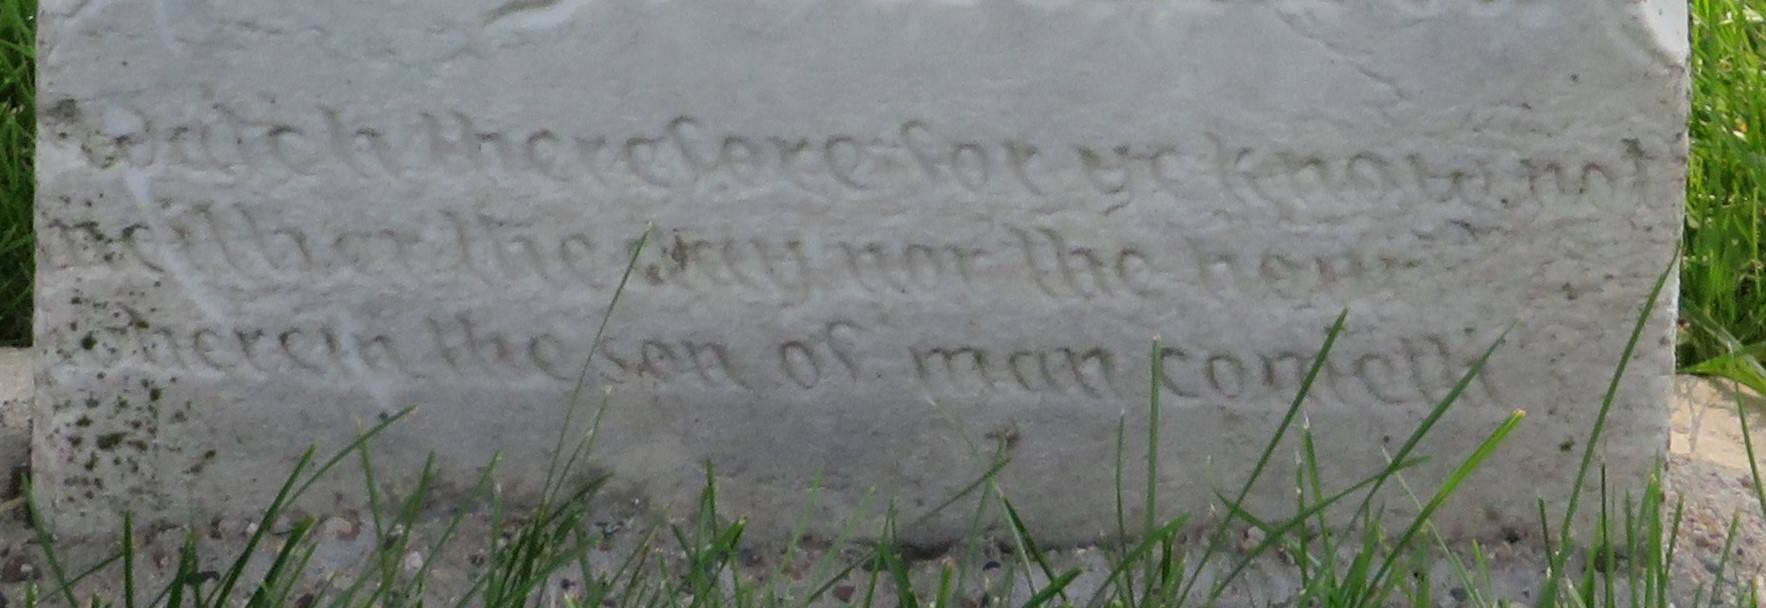 Watch therefore for ye know not
neither the day nor the hour
wherein the son of man cometh